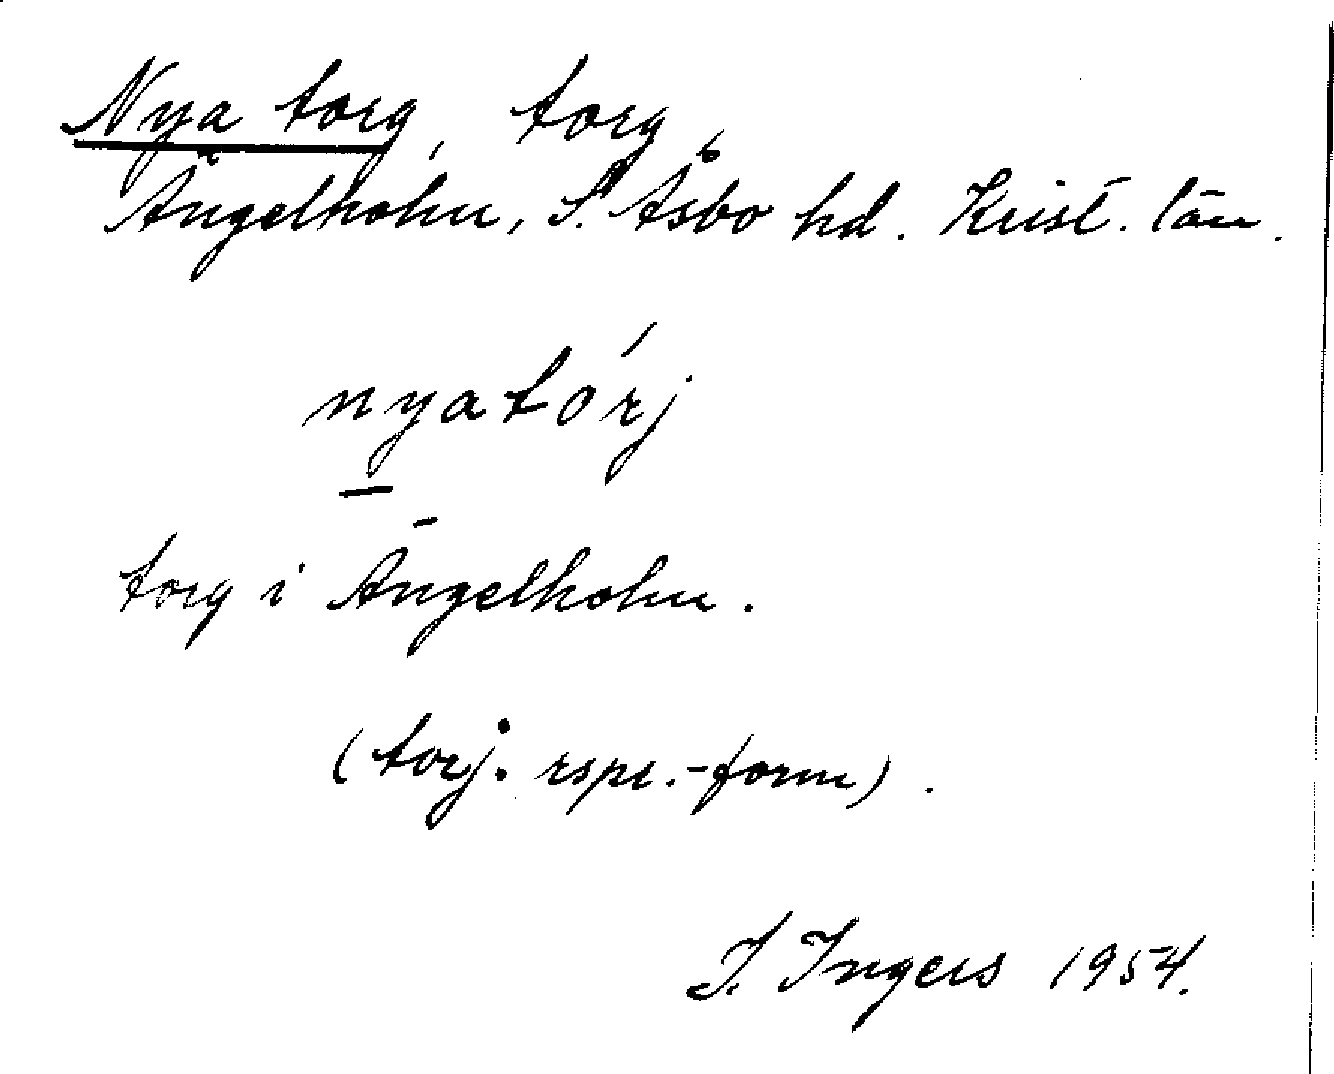 Nya torg, torg,
Ängelholm, S. Åsbo hd. Krist. län.
nyatórj
torg i Ängelholm.
(torj: rspr.-form).
I. Ingers 1954.